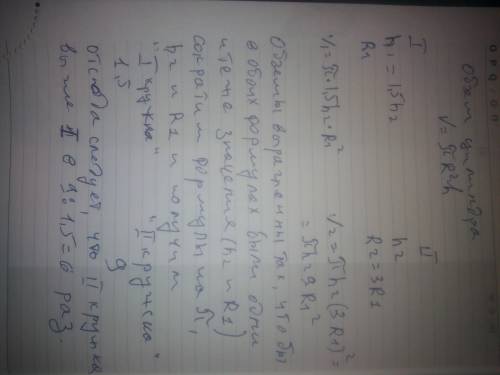 Объем цилиндра
V = πR²h
I II
h₁ = 1,5h₂ h₂
R₁ R₂ = 3R1
V₁ = π · 1,5h₂ · R₁² V₂ = πh₂(3R1)² =
= πh₂9R₁²
Объемы выраженны так, что бы
в обоих формулах были одни
и те же значения (h₂ и R1)
сократим формулы на π,
h₂ и R1 и получим
"I кружка" "II кружска"
1,5 9
отсюда следует, что II кружка
выше I в 9:1,5=6 раз.